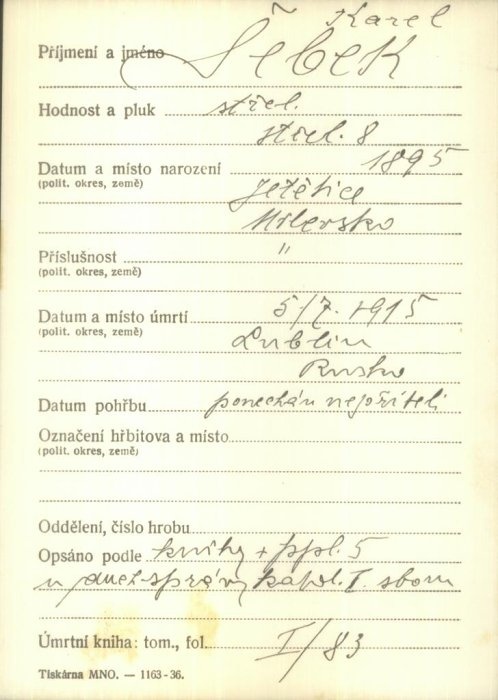 Karel
Příjmení a jméno Šebek
Hodnost a pluk střel.
střel. 8
Datum a místo narození 1895
(polit. okres, země) Jetětice
Milevsko
Příslušnost "
(polit. okres, země)
Datum a místo úmrtí 5/7. 1915
(polit. okres, země) Lublin
Rusko
Datum pohřbu ponechán nepříteli
Označení hřbitova a místo
(polit. okres, země)
Oddělení, číslo hrobu
Opsáno podle knihy + ppl. 5
u duch. správy I. sboru
Úmrtní kniha: tom., fol. I/83
Tiskárna MNO. — 1163-36.